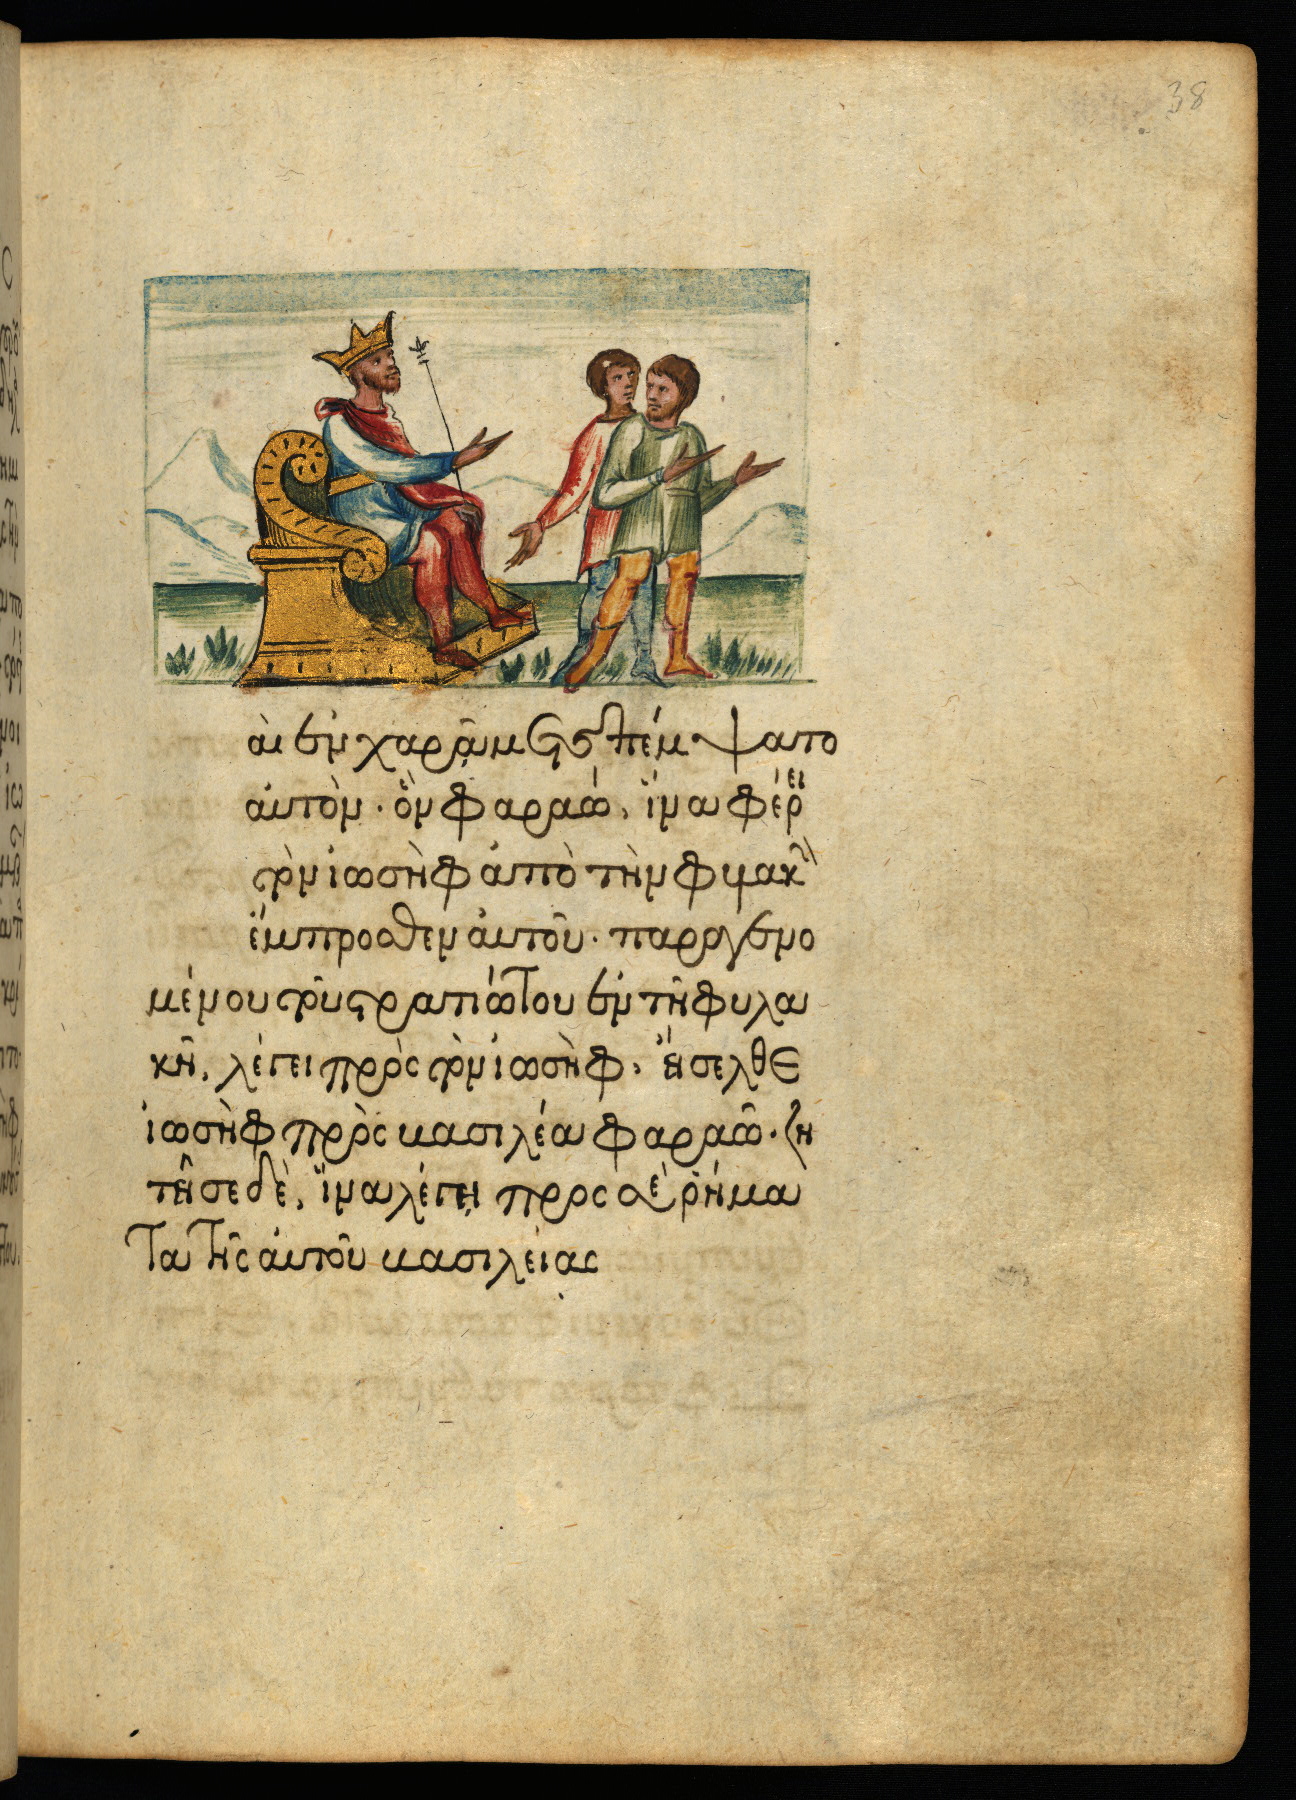 38
αι ἐν χαρᾷ μεγάλη πέμψαντο
ἀυτὸν. ὁν φαραώ, ἵνα φέρει
τὸν ἰωσὴφ ἀπὸ τὴν φυλακὴν
ἔμπροσθεν ἀυτοῦ. παραγενο
μένου τοῦ στρατιώτου ἐν τῆ φυλα
κῆ, λέγει πρὸς τὸν ἰωσὴφ. ἔισελθε
ἰωσὴφ πρὸς βασιλέα φαραῶ. ζη
τεῖ σε δὲ, ἵνα λέγει προς σὲ ῥήμα
τα τῆς ἀυτοῦ βασιλείας